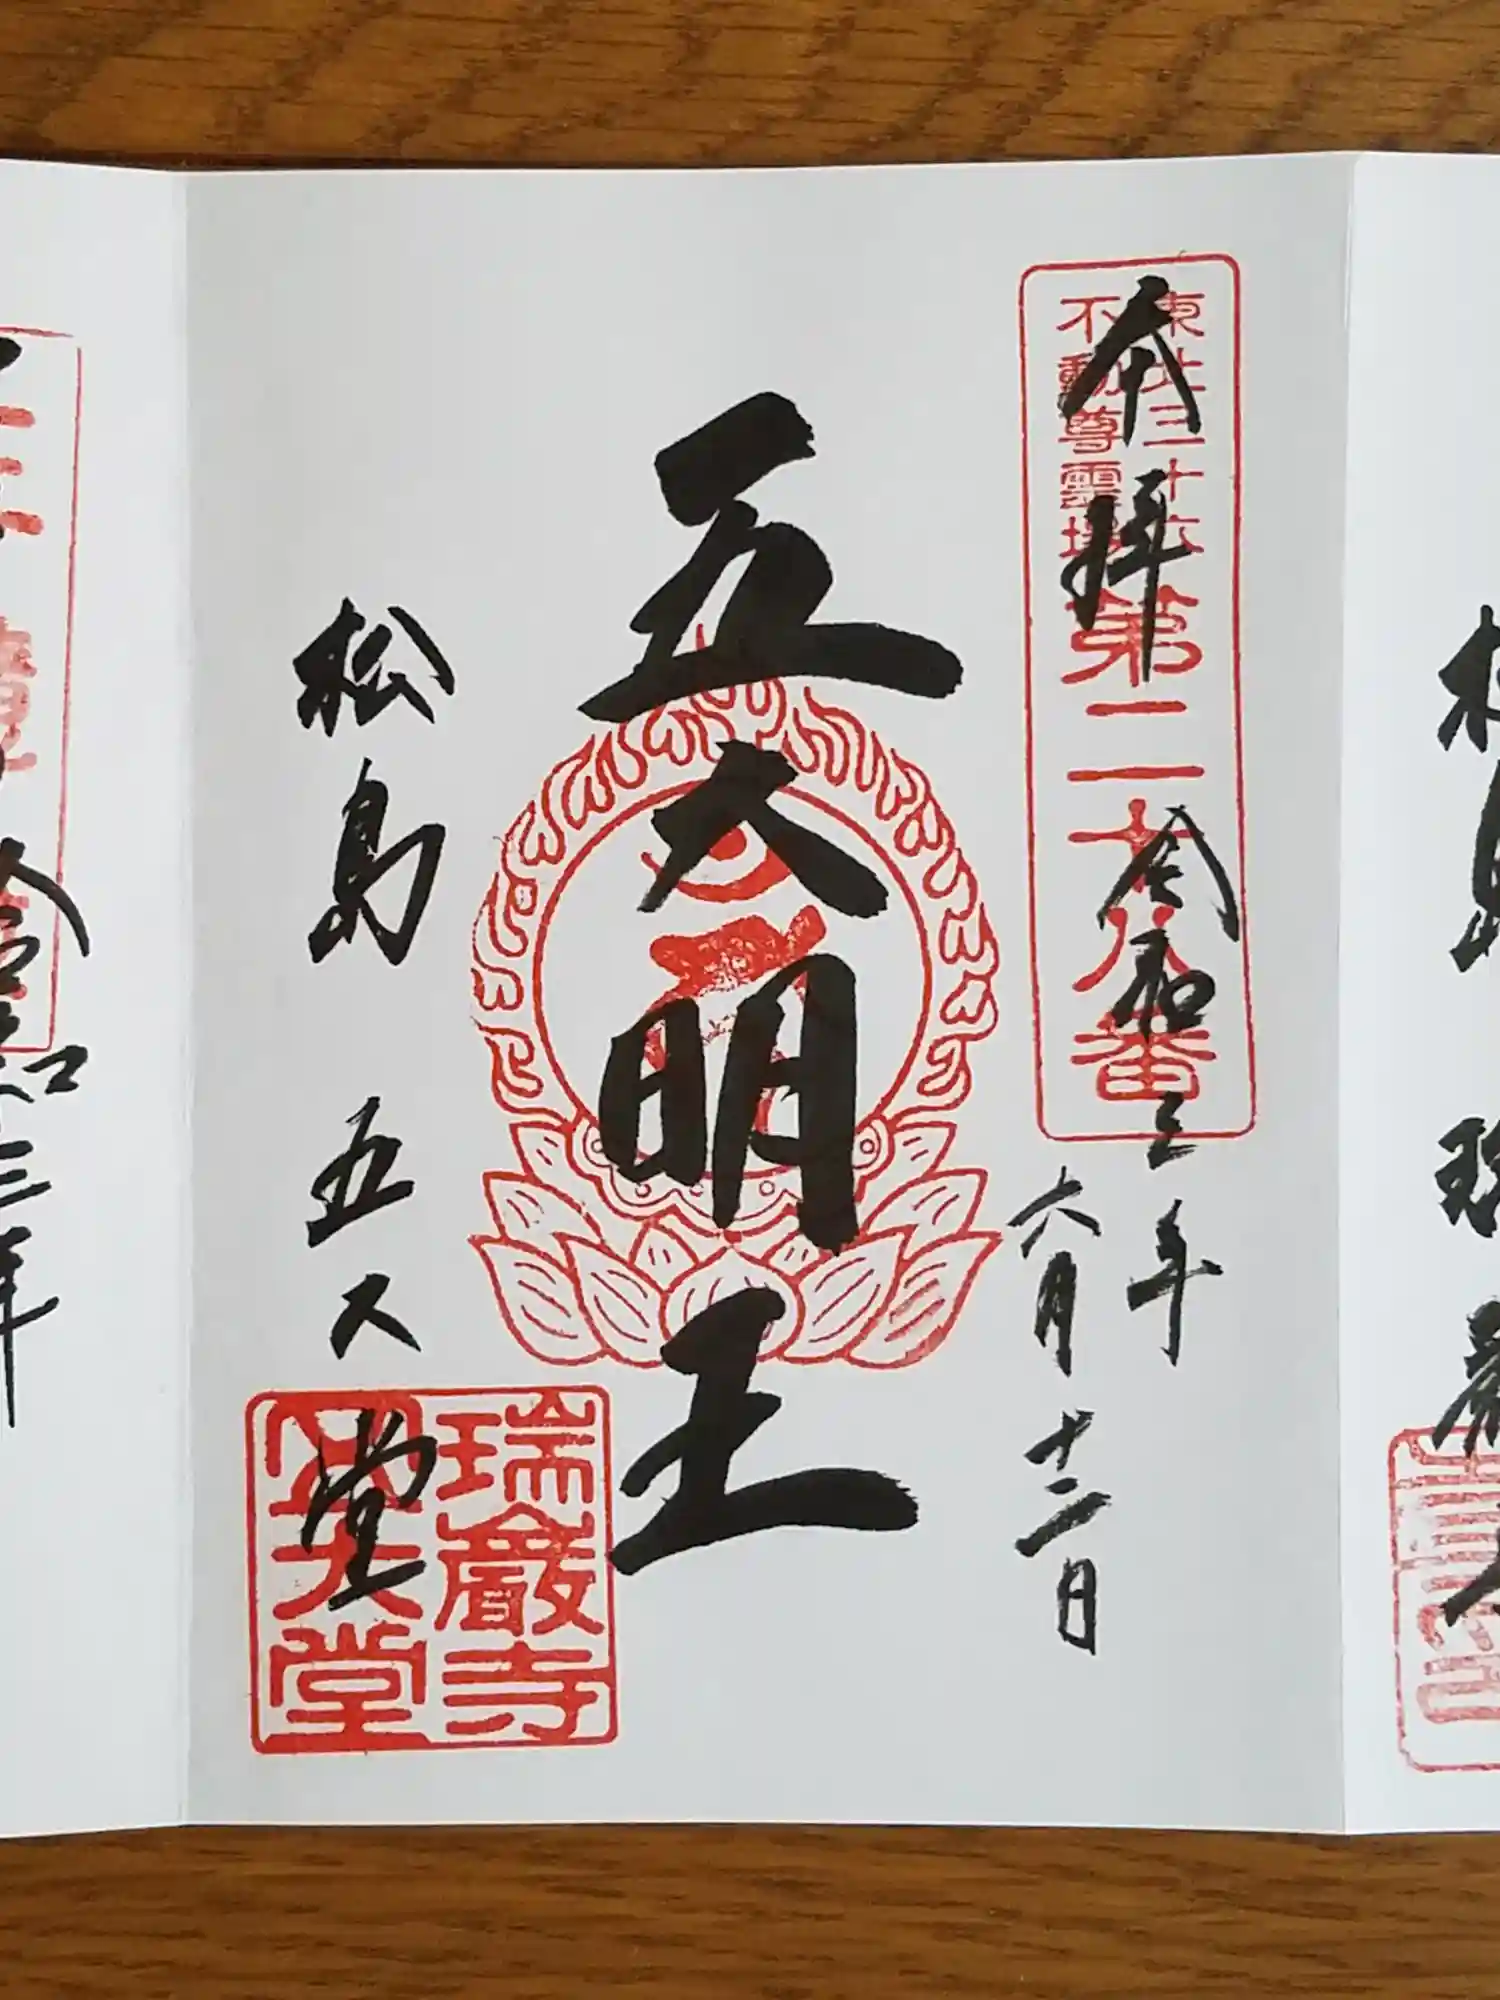 奉拝
東北三十六
不動尊霊場
第二十八番
令和三年
六月十二日
五大明王
松島 五大堂
瑞巖寺
五大堂
令和三年
松島 瑞巖